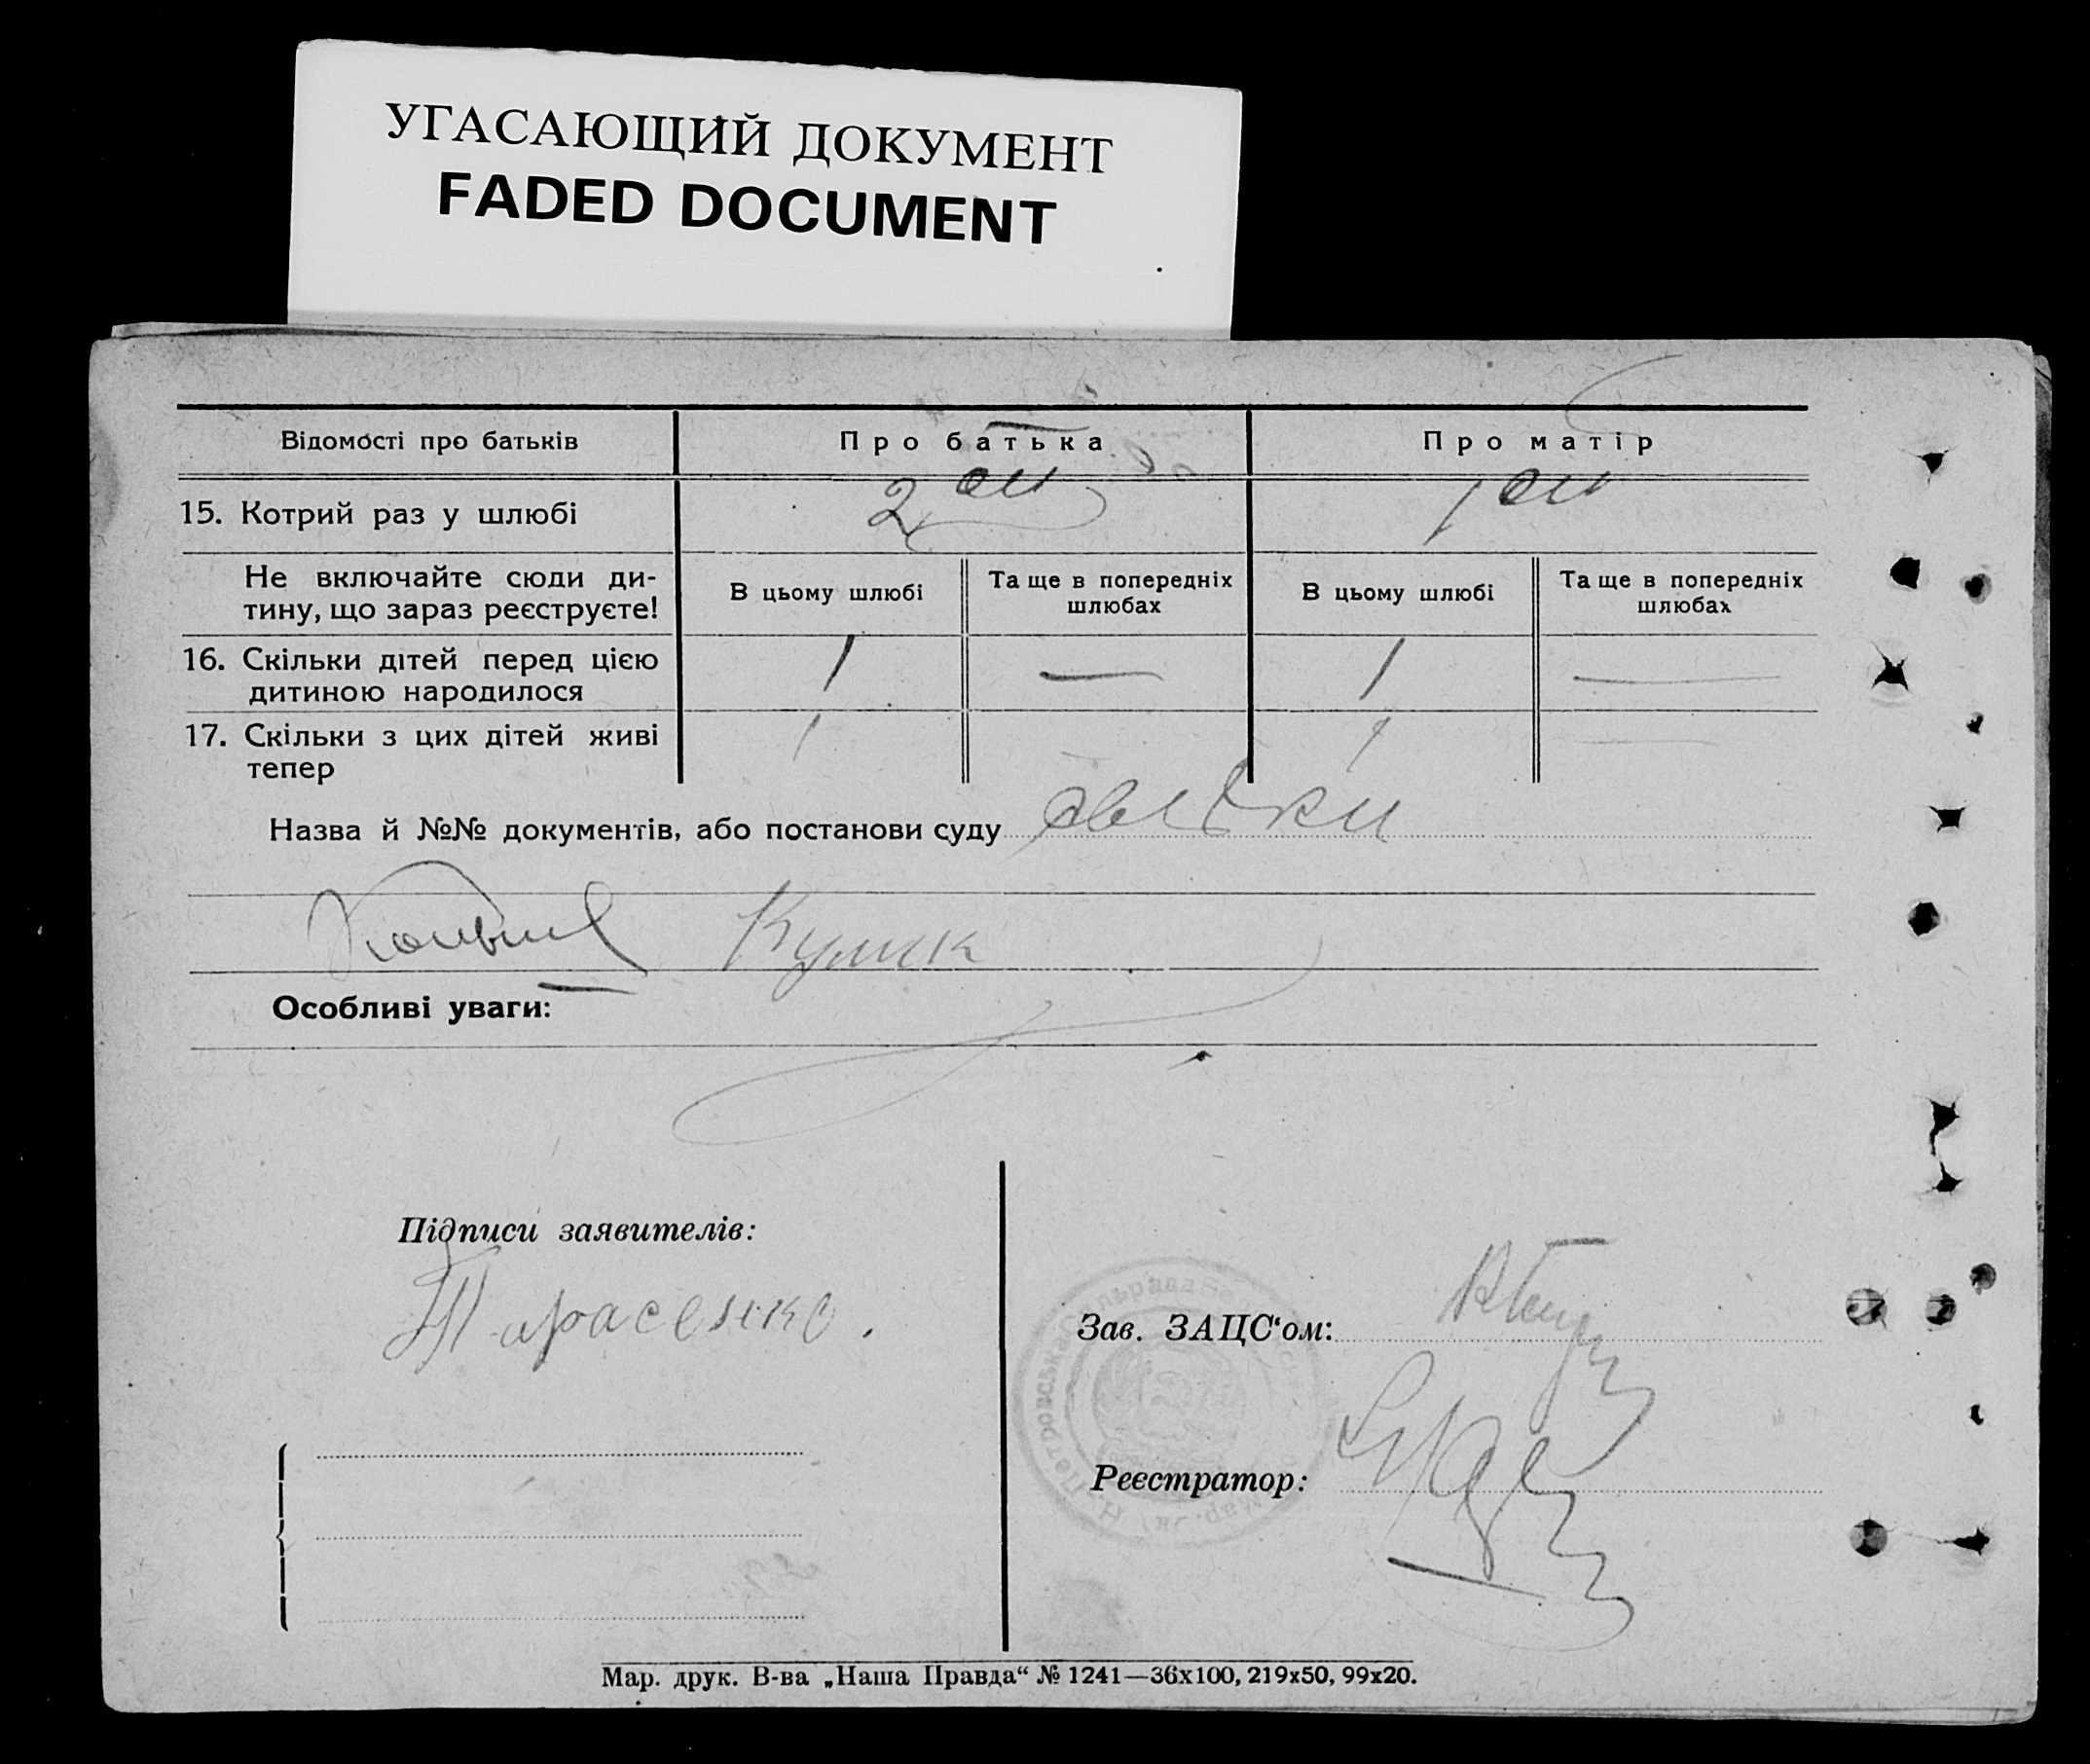 УГАСАЮЩИЙ ДОКУМЕНТ
FADED DOCUMENT
Відомості про батьків
Про батька
Про матір
15. Котрий раз у шлюбі
2
1
Не включайте сюди ди-
тину, що зараз реєструєте!
В цьому шлюбі
Та ще в попередніх
шлюбах
В цьому шлюбі
Та ще в попередніх
шлюбах
16. Скільки дітей перед цією
дитиною народилося
1
—
1
—
17. Скільки з цих дітей живі
тепер
1
1
—
Назва й №№ документів, або постанови суду
Кулик
Особливі уваги:
Підписи заявителів:
Тарасенко.
Зав. ЗАЦС‘ом:
Реєстратор:
Мар. друк. В-ва „Наша Правда“ № 1241—36х100, 219х50, 99х20.